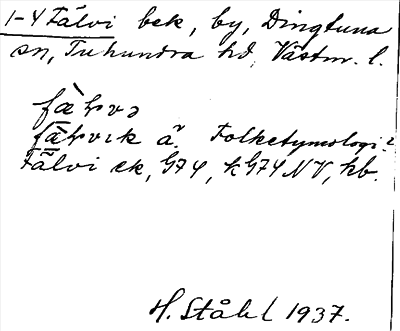 1-4 Fälvi bek, by, Dingtuna
sn, Tuhundra hd, Västm. l.
fæ̀ƕvə
fæ̀ƕvɪk å. Folketymologi?
Fälvi ek, G74, k G74 NV, hb.
H. Ståhl 1937.